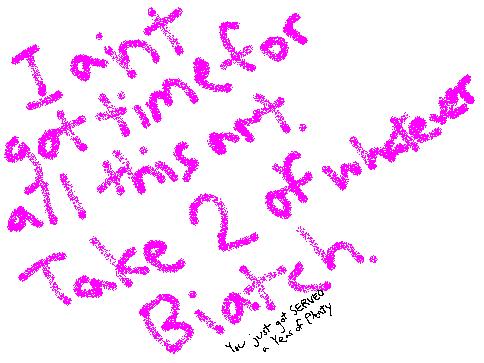 I ain't
got time for
all this art.
Take 2 of whatever
Biatch.
You just got SERVED
a Years of Plenty